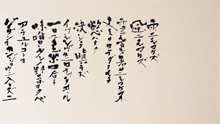 雨ニモマケズ
風ニモマケズ
雪ニモ夏ノ暑サニモマケヌ
丈夫ナカラダヲモチ
慾ハナク
決シテ瞋ラズ
イツモシヅカニワラッテヰル
一日ニ玄米四合ト
味噌ト少シノ野菜ヲタベ
アラユルコトヲ
ジブンヲカンジョウニ入レズニ